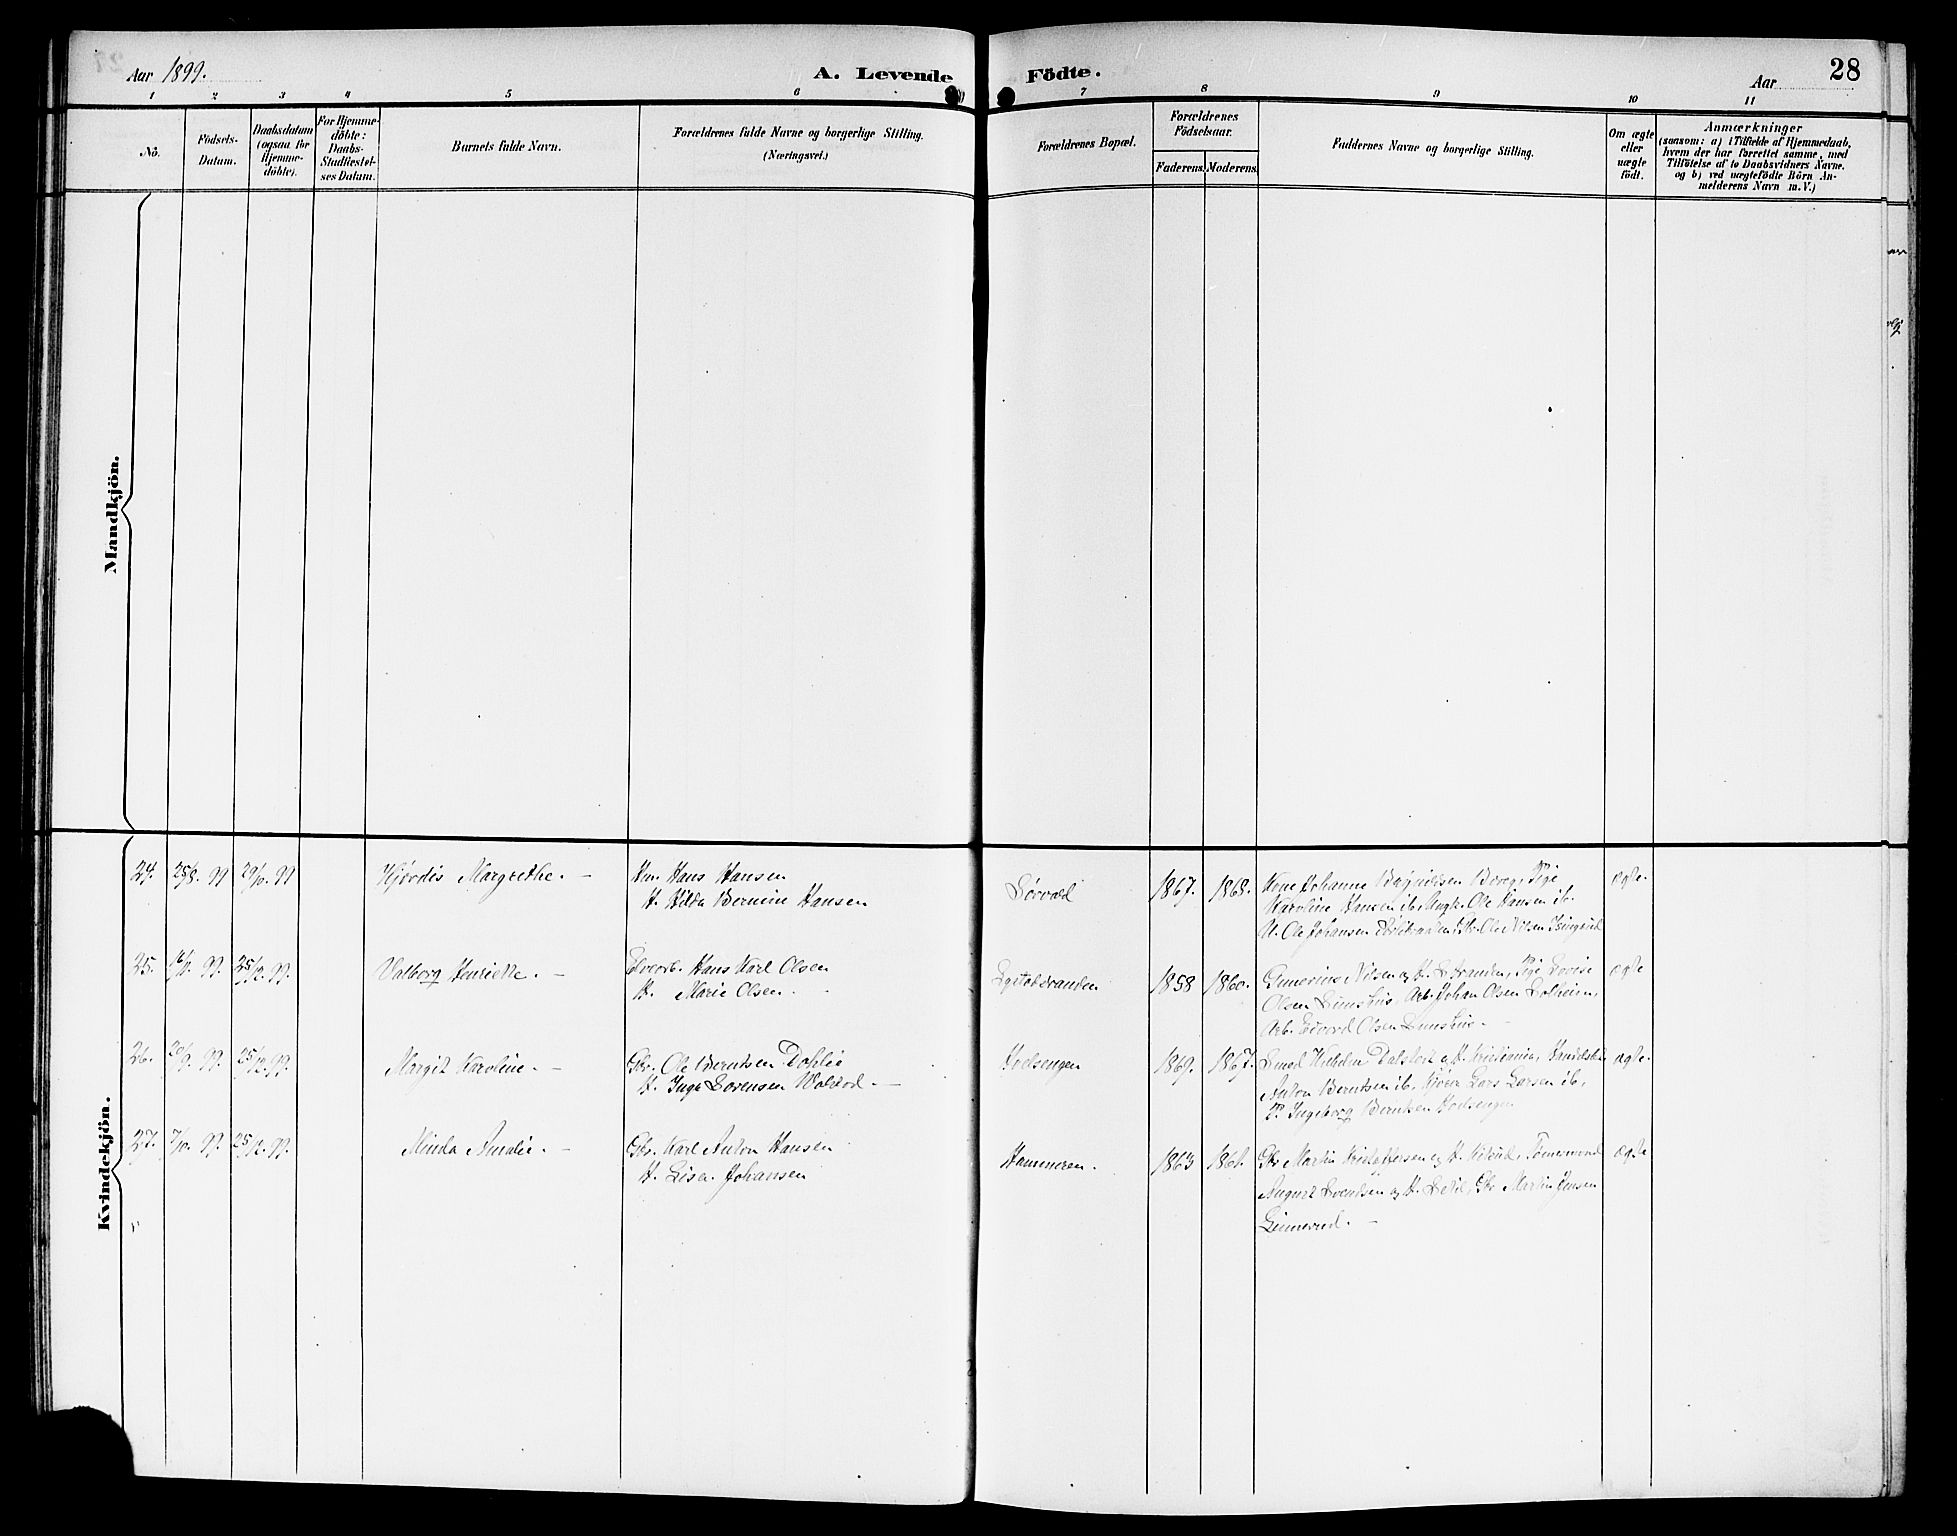 Aar 1899.
A. Levende Födte.
Aar
28
1 2 3 4 5 6 7 8 9 10 11
No.
Födsels-
Datum.
Daabsdatum
(ogsaa for
Hjemme-
döbte).
For Hjemme-
döbte:
Daabs-
Stadfæstel-
ses Datum.
Barnets fulde Navn.
Forældrenes fulde Navne og borgerlige Stilling.
(Næringsvei.)
Forældrenes Bopæl.
Forældrenes
Födselsaar.
Faderens. Moderens.
Faddernes Navne og borgerlige Stilling.
Om ægte
eller
uægte
födt.
Anmærkninger
(saasom: a) i Tilfælde af Hjemmedaab,
hvem der har forrettet samme, med
Tilföielse af to Daabsvidners Navne.
og b) ved uægtefödte Börn An-
melderens Navn m.V.)
Mandkjön.
Kvindekjön.
24. 25/8. 99 29/10. 99 Hjördis Margrethe. – Hans Hansen
H. Hilda Bernine Hansen
Sörvald 1867. 1868. Kone Johanne Berg, Pige
Karoline Hansen ib. Ungk. Ole Hansen ib.
Ole Johansen Ole Nilsen
ægte.
25. 99. 25/12. 99. Valborg Henriette. – Hans Karl Olsen
H. Marie Olsen.
1858 1860. Gunerius Nilsen og H. Stranden, Pige Lovise
Olsen Arb. Johan Olsen Solheim,
Arb. Edvard Olsen
ægte
26. 20/9. 99. 25/12. 99. Margit Karoline. – Gbr. Ole Berntsen Dahlie
H. Inga Sorensen
Hoelsengen 1869. 1867. Smed Wilhelm og H. Kristiania,
Anton Berntsen ib. Lars Larsen ib.
P. Ingeborg Berntsen Hoelsengen
ægte.
27. 7/10. 99. 25/12. 99. Minda Amalie. – Gbr. Karl Anton Hansen
H. Lisa Johansen
Hammeren. 1863 1861. Gbr Martin Kristoffersen og H.
August Svendsen og H. Gbr Martin Jensen
Linnerud. –
ægte